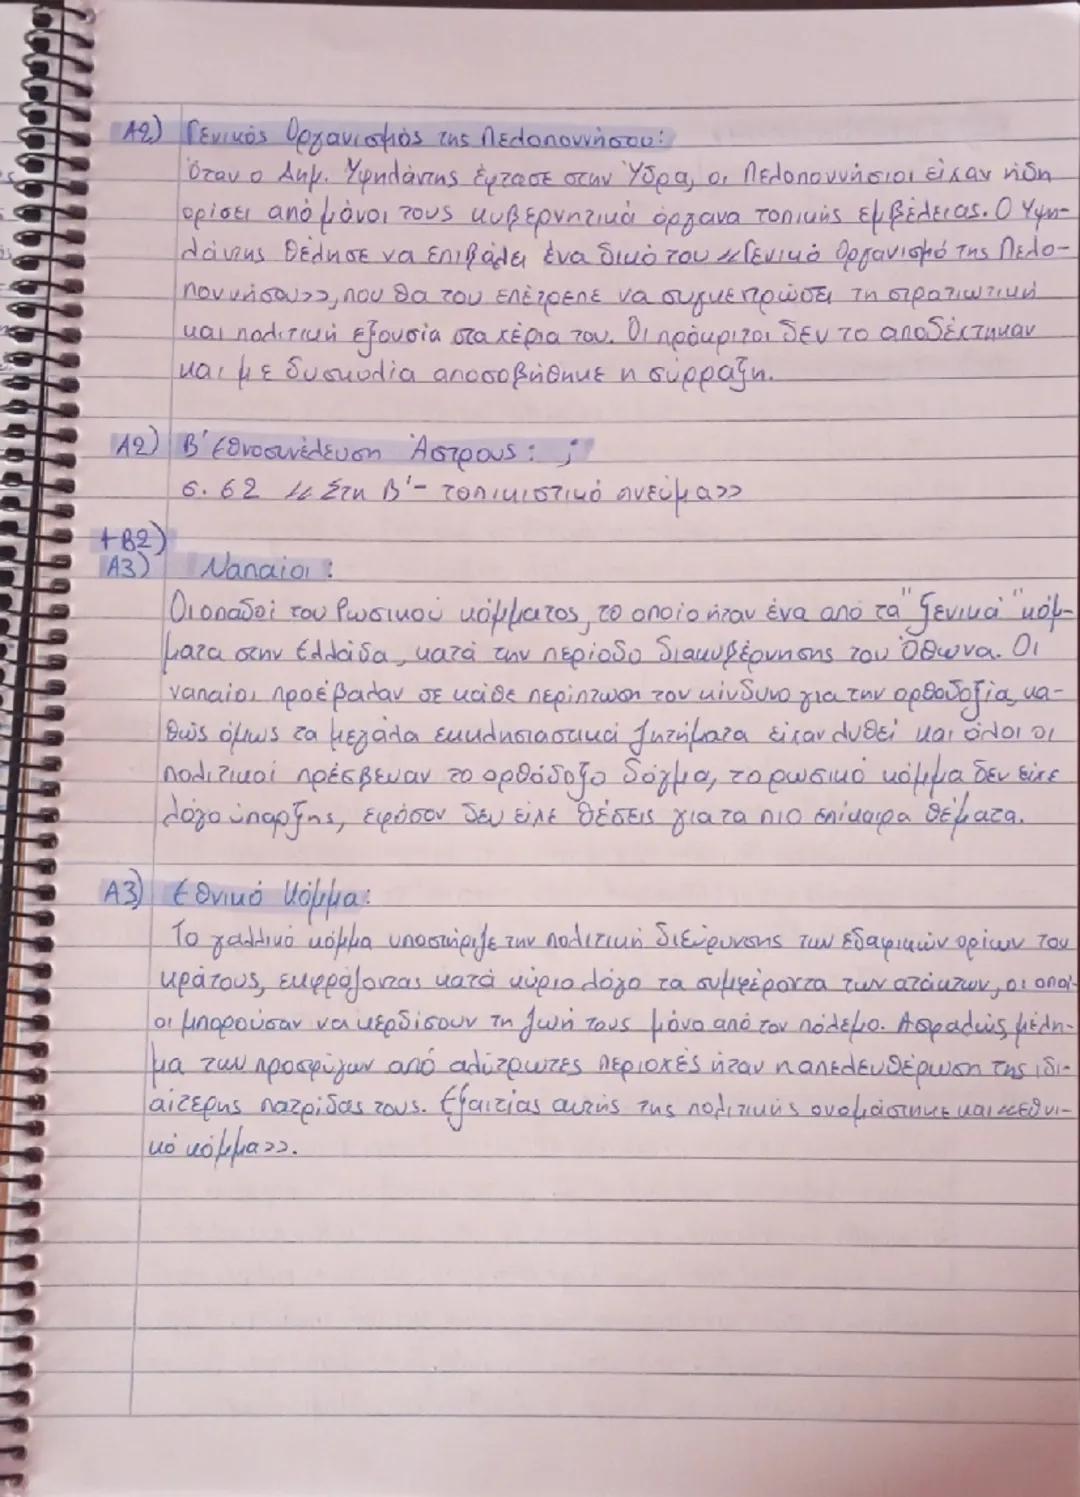 Α2) Γενικός Οργανισμός της Πελοποννήσου:
Όταν ο Δημ. Υψηλάντης έφτασε στην Ύδρα, οι Πελοποννήσιοι είχαν ήδη
ορίσει από μόνοι τους κυβερνητικά όργανα τοπικής εμβέλειας. Ο Υψη-
λάντης θέλησε να επιβάλει ένα δικό του «Γενικό Οργανισμό της Πελο-
ποννήσου», που θα του επέτρεπε να συγκεντρώσει τη στρατιωτική
και πολιτική εξουσία στα χέρια του. Οι πρόκριτοι δεν το αποδέχτηκαν
και με δυσκολία αποσοβήθηκε η σύρραξη.
Α2) Β' Εθνοσυνέλευση Άστρους: ;
σ. 62 «Στη Β'- τοπικιστικό πνεύμα»
+Β2)
Α3) Ναπαίοι:
Οι οπαδοί του Ρωσικού κόμματος, το οποίο ήταν ένα από τα "ξενικά" κόμ-
ματα στην Ελλάδα, κατά την περίοδο διακυβέρνησης του Όθωνα. Οι
ναπαίοι προέβαλαν σε κάθε περίπτωση τον κίνδυνο για την ορθοδοξία, κα-
θώς όμως τα μεγάλα εκκλησιαστικά ζητήματα είχαν λυθεί και όλοι οι
πολιτικοί πρέσβευαν το ορθόδοξο δόγμα, το ρωσικό κόμμα δεν είχε
λόγο ύπαρξης, εφόσον δεν είχε θέσεις για τα πιο επίκαιρα θέματα.
Α3) Εθνικό Κόμμα:
Το γαλλικό κόμμα υποστήριζε την πολιτική διεύρυνσης των εδαφικών ορίων του
κράτους, εκφράζοντας κατά κύριο λόγο τα συμφέροντα των ατάκτων, οι οποί-
οι μπορούσαν να κερδίσουν τη ζωή τους μόνο από τον πόλεμο. Ασφαλώς, μέλη-
μα των προσφύγων από αλύτρωτες περιοχές ήταν η απελευθέρωση της ιδι-
αίτερης πατρίδας τους. Εξαιτίας αυτής της πολιτικής ονομάστηκε και «Εθνι-
κό κόμμα».